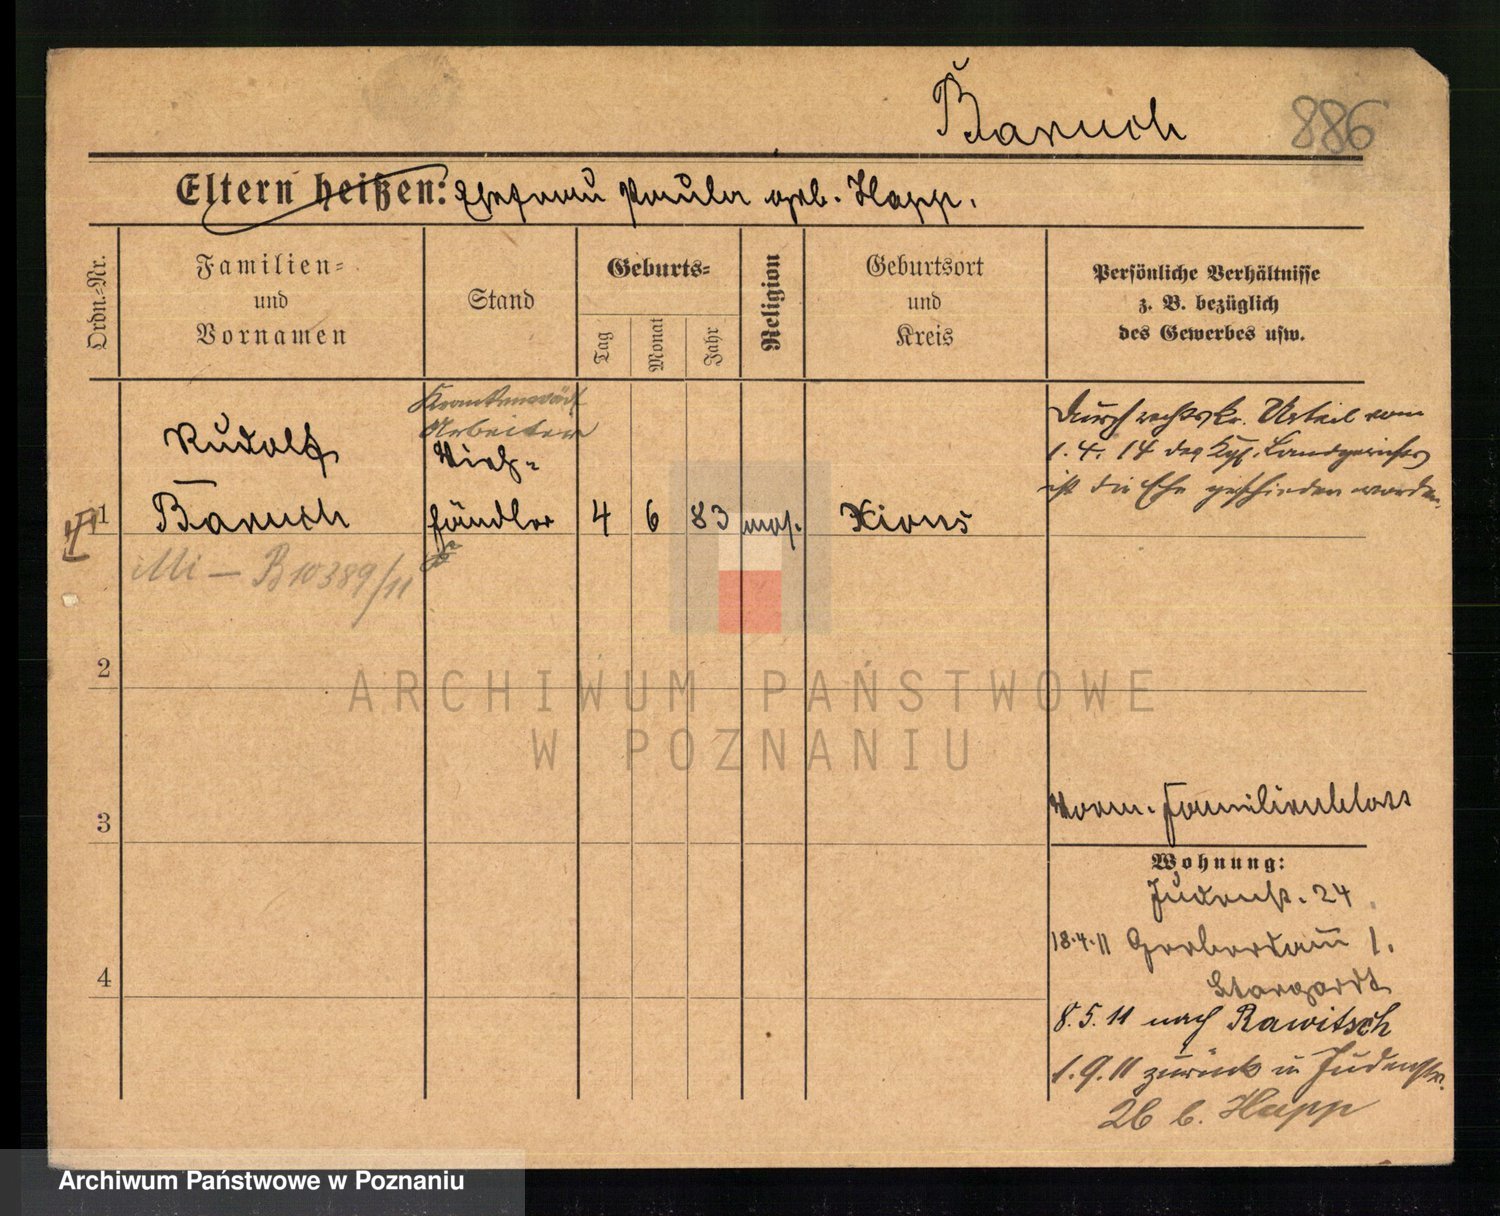 Baruch 886
Eltern heißen: Ehefrau Paula geb. Happ.
Ordn.-Nr.
Familien-
und
Vornamen
Stand
Geburts-
Tag
Monat
Jahr
Religion
Geburtsort
und
Kreis
Persönliche Verhältnisse
z. B. bezüglich
des Gewerbes usw.
Arbeiter
Rudolf
Vieh-
1 Baruch händler 4 6 83 mos. Xions
Durch rechtskr. Urteil vom
1.4.14 des Kgl. Landgerichts
ist die Ehe geschieden worden.
Mi — B 10389/11
2
ARCHIWUM PAŃSTWOWE
W POZNANIU
3
Vorm. Familienblatt
Wohnung:
Judenstr. 24
18.4.11 Gerberdamm 1.
4
Stargardt
8.5.11 nach Rawitsch
1.9.11 zurück in Judenstr.
26 b. Happ
Archiwum Państwowe w Poznaniu